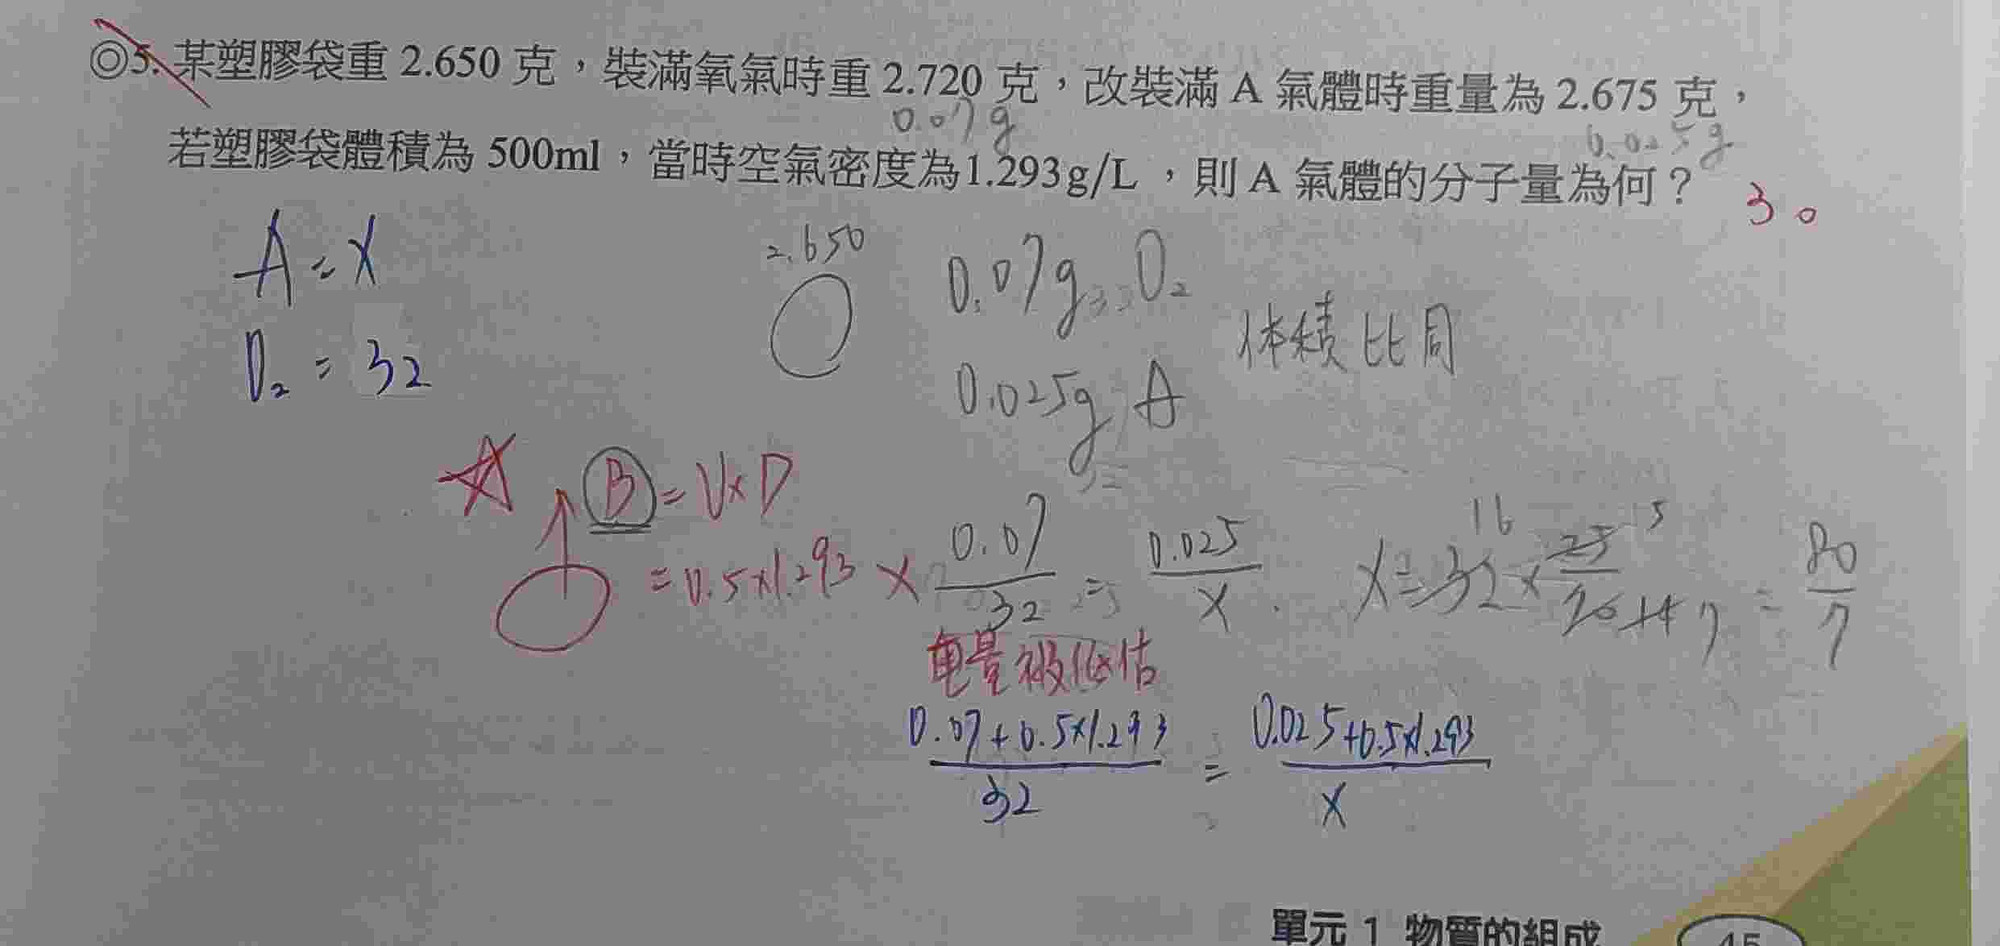 ◎5. 某塑膠袋重 2.650 克，裝滿氧氣時重 2.720 克，改裝滿 A 氣體時重量為 2.675 克，
0.07g
0.025g
若塑膠袋體積為 500ml，當時空氣密度為1.293g/L ，則 A 氣體的分子量為何？
30
A = X
O₂ = 32
2.650
0.07g O₂
0.025g A
体積比同
B = V×D
= 0.5×1.293
× 0.07/32 = 0.025/X
X = 32 × 25/70 = 80/7
16
5
14
7
重量被低估
0.07+0.5×1.293/32 = 0.025+0.5×1.293/X
單元 1 物質的組成
45